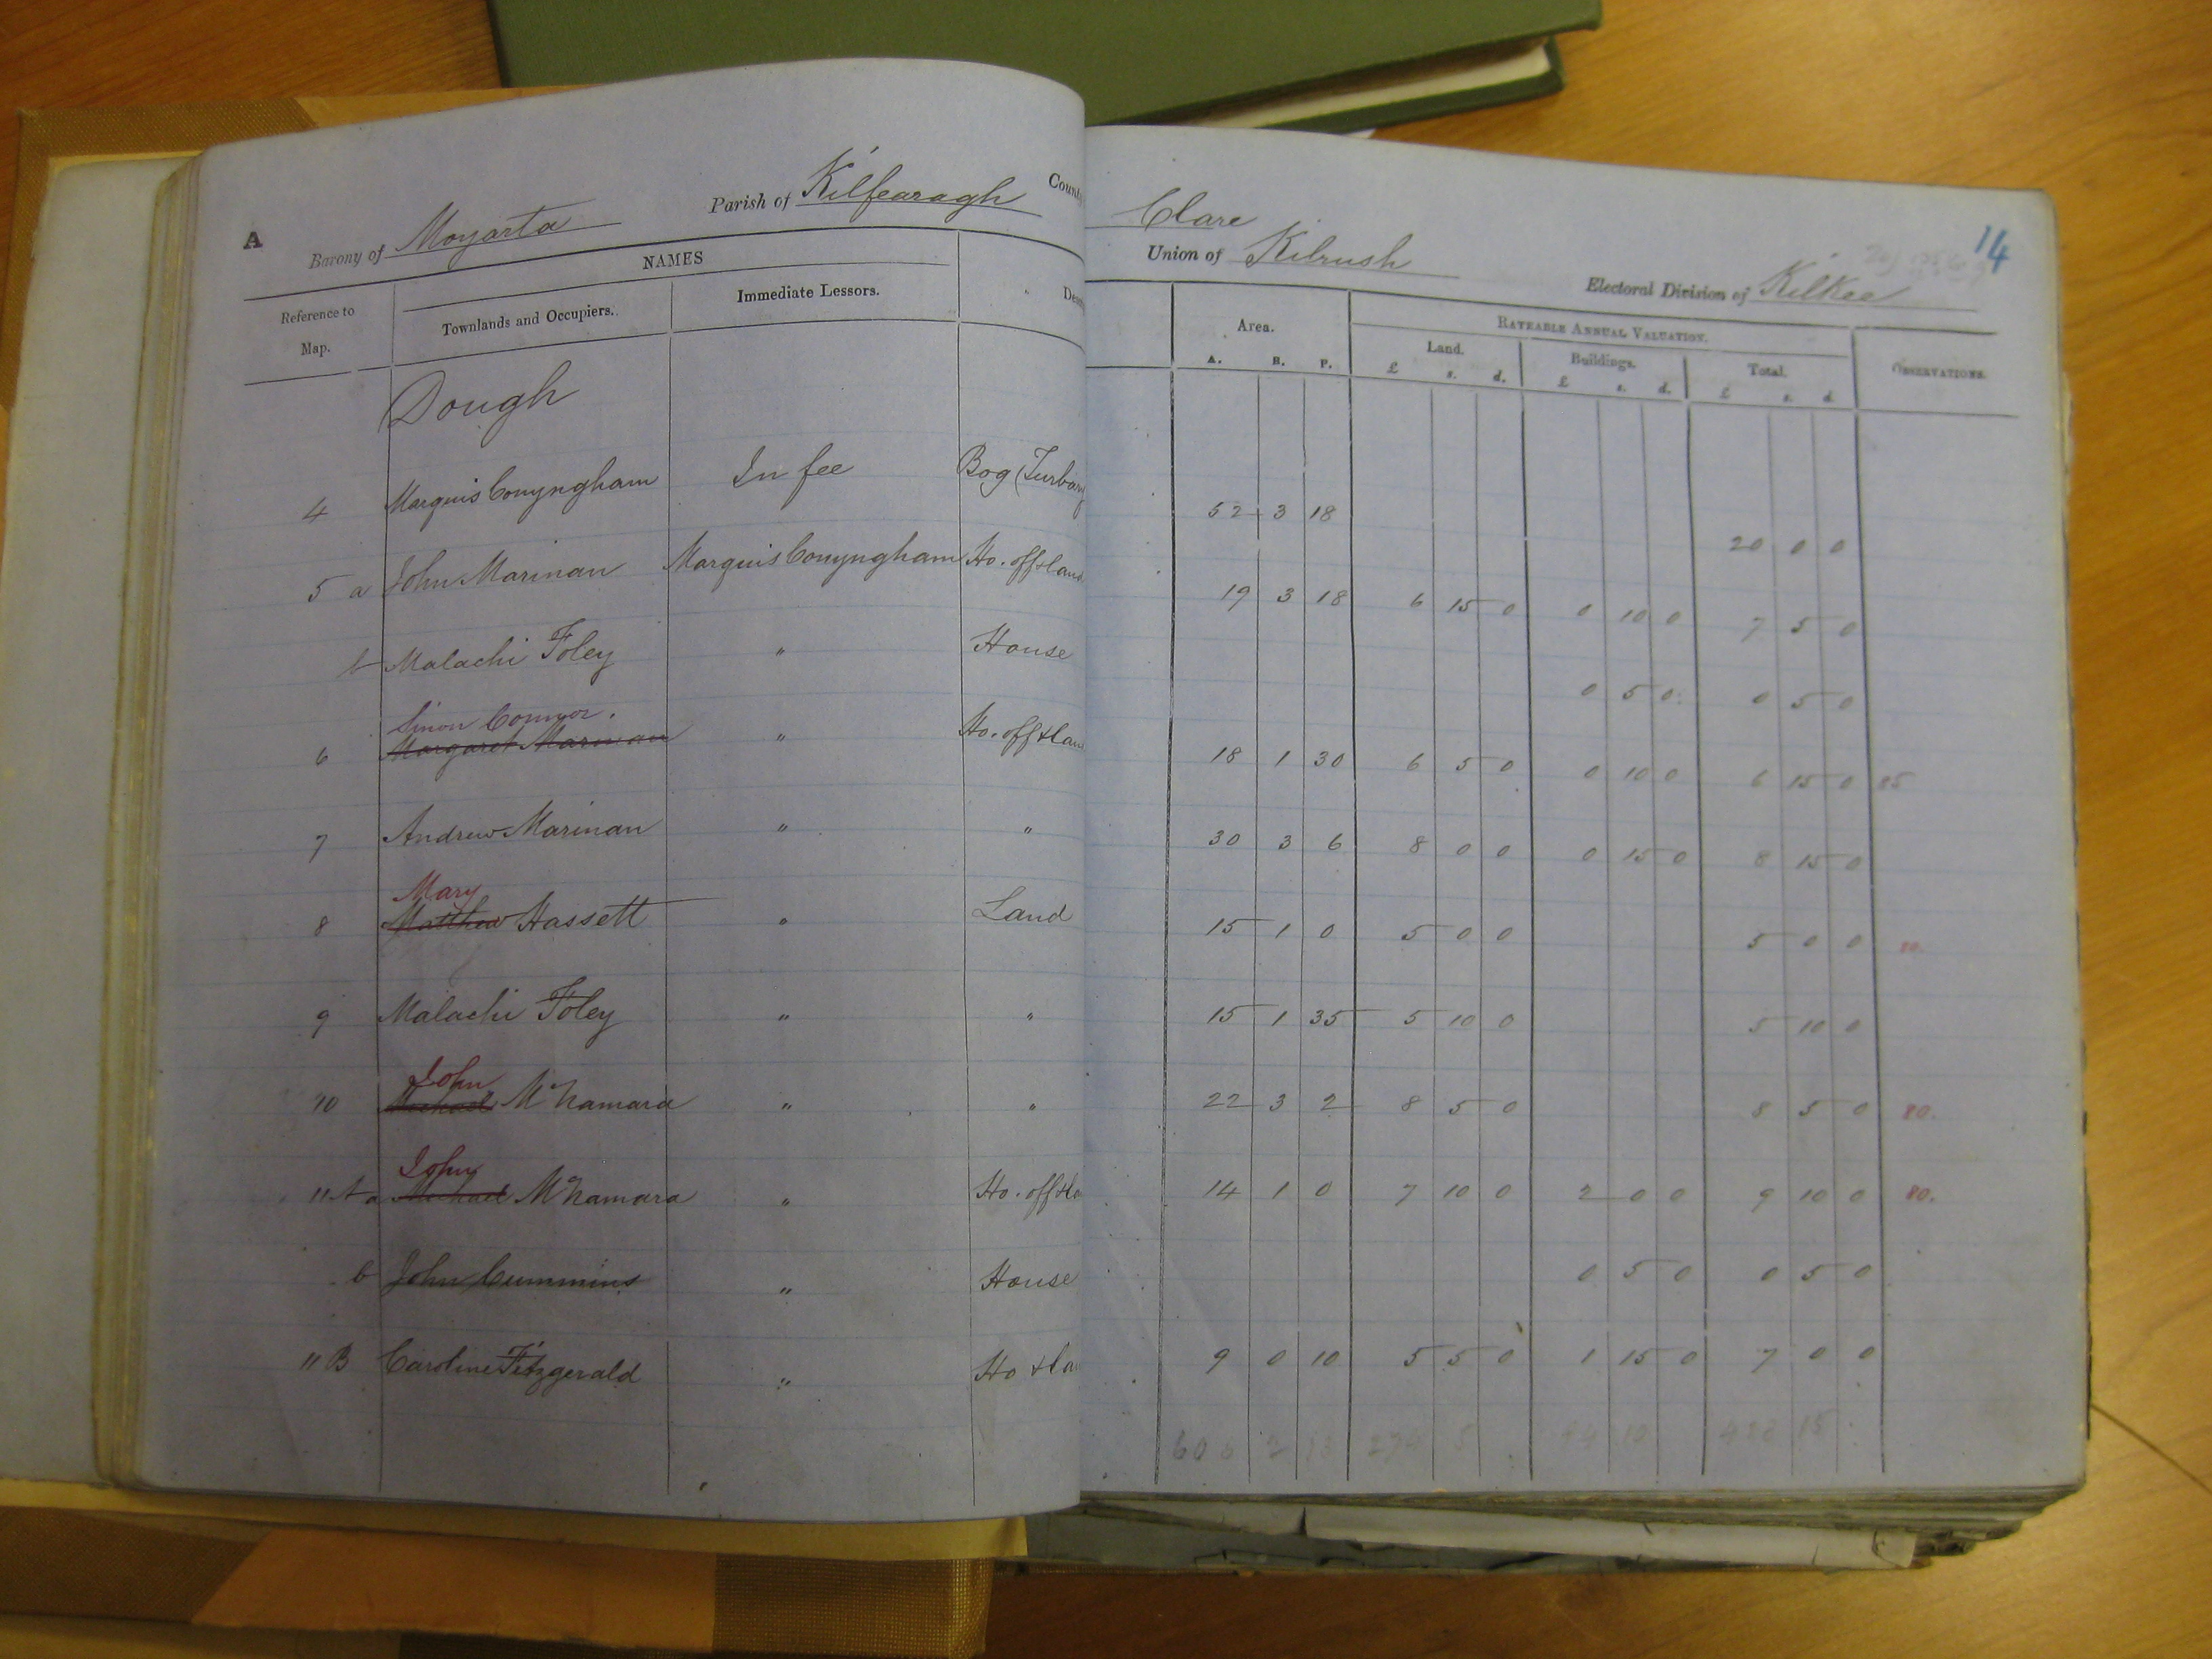 A Barony of Moyarta Parish of Kilfearagh County
Clare
Union of Kilrush Electoral Division of Kilkee 14
Reference to Map. NAMES
Townlands and Occupiers. Immediate Lessors.
Area. RATEABLE ANNUAL VALUATION. OBSERVATIONS.
Land. Buildings. Total.
A. R. P. £ s. d. £ s. d. £ s. d.
Dough
4 Marquis Conyngham In fee Bog (Turbary 52 3 18 20 0 0
5 a John Marinan Marquis Conyngham Ho. off & land 19 3 18 6 15 0 0 10 0 7 5 0
b Malachi Foley " House 0 5 0 0 5 0
Sinon Connor.
6 Margaret Marinan " Ho. off & lan 18 1 30 6 5 0 0 10 0 6 15 0 85
7 Andrew Marinan " " 30 3 6 8 0 0 0 15 0 8 15 0
Mary
8 Matthew Hassett " Land 15 1 0 5 0 0 5 0 0 80.
9 Malachi Foley " " 15 1 35 5 10 0 5 10 0
John
10 Michael McNamara " " 22 3 2 8 5 0 8 5 0 80.
John
11 A a Michael McNamara " Ho. off & la 14 1 0 7 10 0 2 0 0 9 10 0 80.
b John Cummins " House 0 5 0 0 5 0
11 B Caroline Fitzgerald " Ho & lan 9 0 10 5 5 0 1 15 0 7 0 0